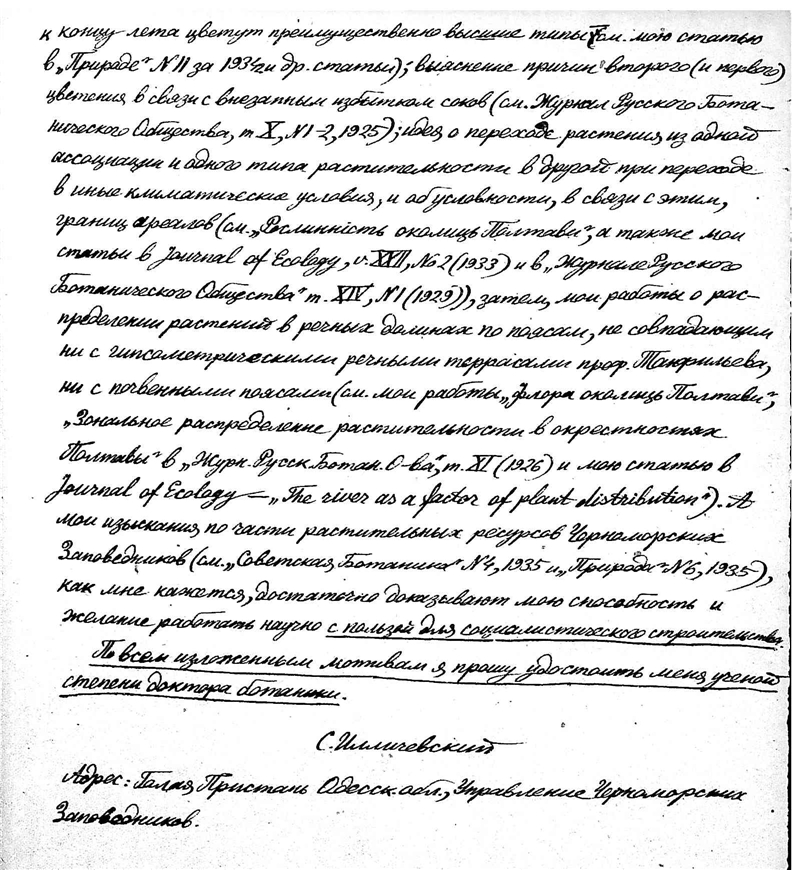 к концу лета цветут преимущественно высшие типы (см. мою статью
в „Природе" №11 за 1934 и др. статьи); выяснение причин второго (и первого)
цветения в связи с внезапным избытком соков (см. Журнал Русского Бота-
нического Общества, т. X, №1-2, 1925); идея о переходе растения из одной
ассоциации и одного типа растительности в другой при переходе
в иные климатические условия, и об условности, в связи с этим,
границ ареалов (см. „Рослинність околиць Полтави", а также мои
статьи в Journal of Ecology, v. XXII, No 2 (1933) и в „Журнале Русского
Ботанического Общества" т. XIV, №1 (1929)), затем, мои работы о рас-
пределении растений в речных долинах по поясам, не совпадающим
ни с гипсометрическими речными террасами проф. Танфильева,
ни с почвенными поясами (см. мои работы „Флора околиць Полтави",
„Зональное распределение растительности в окрестностях
Полтавы" в „Журн. Русск. Ботан. О-ва", т. XI (1926) и мою статью в
Journal of Ecology — „The river as a factor of plant distribution"). А
мои изыскания по части растительных ресурсов Черноморских
Заповедников (см. „Советская Ботаника" №4, 1935 и „Природа" №6, 1935),
как мне кажется, достаточно доказывают мою способность и
желание работать научно с пользой для социалистического строительства.
По всем изложенным мотивам я прошу удостоить меня ученой
степени доктора ботаники.
С. Илличевский
Адрес: Голая Пристань Одесск. обл., Управление Черноморских
Заповедников.